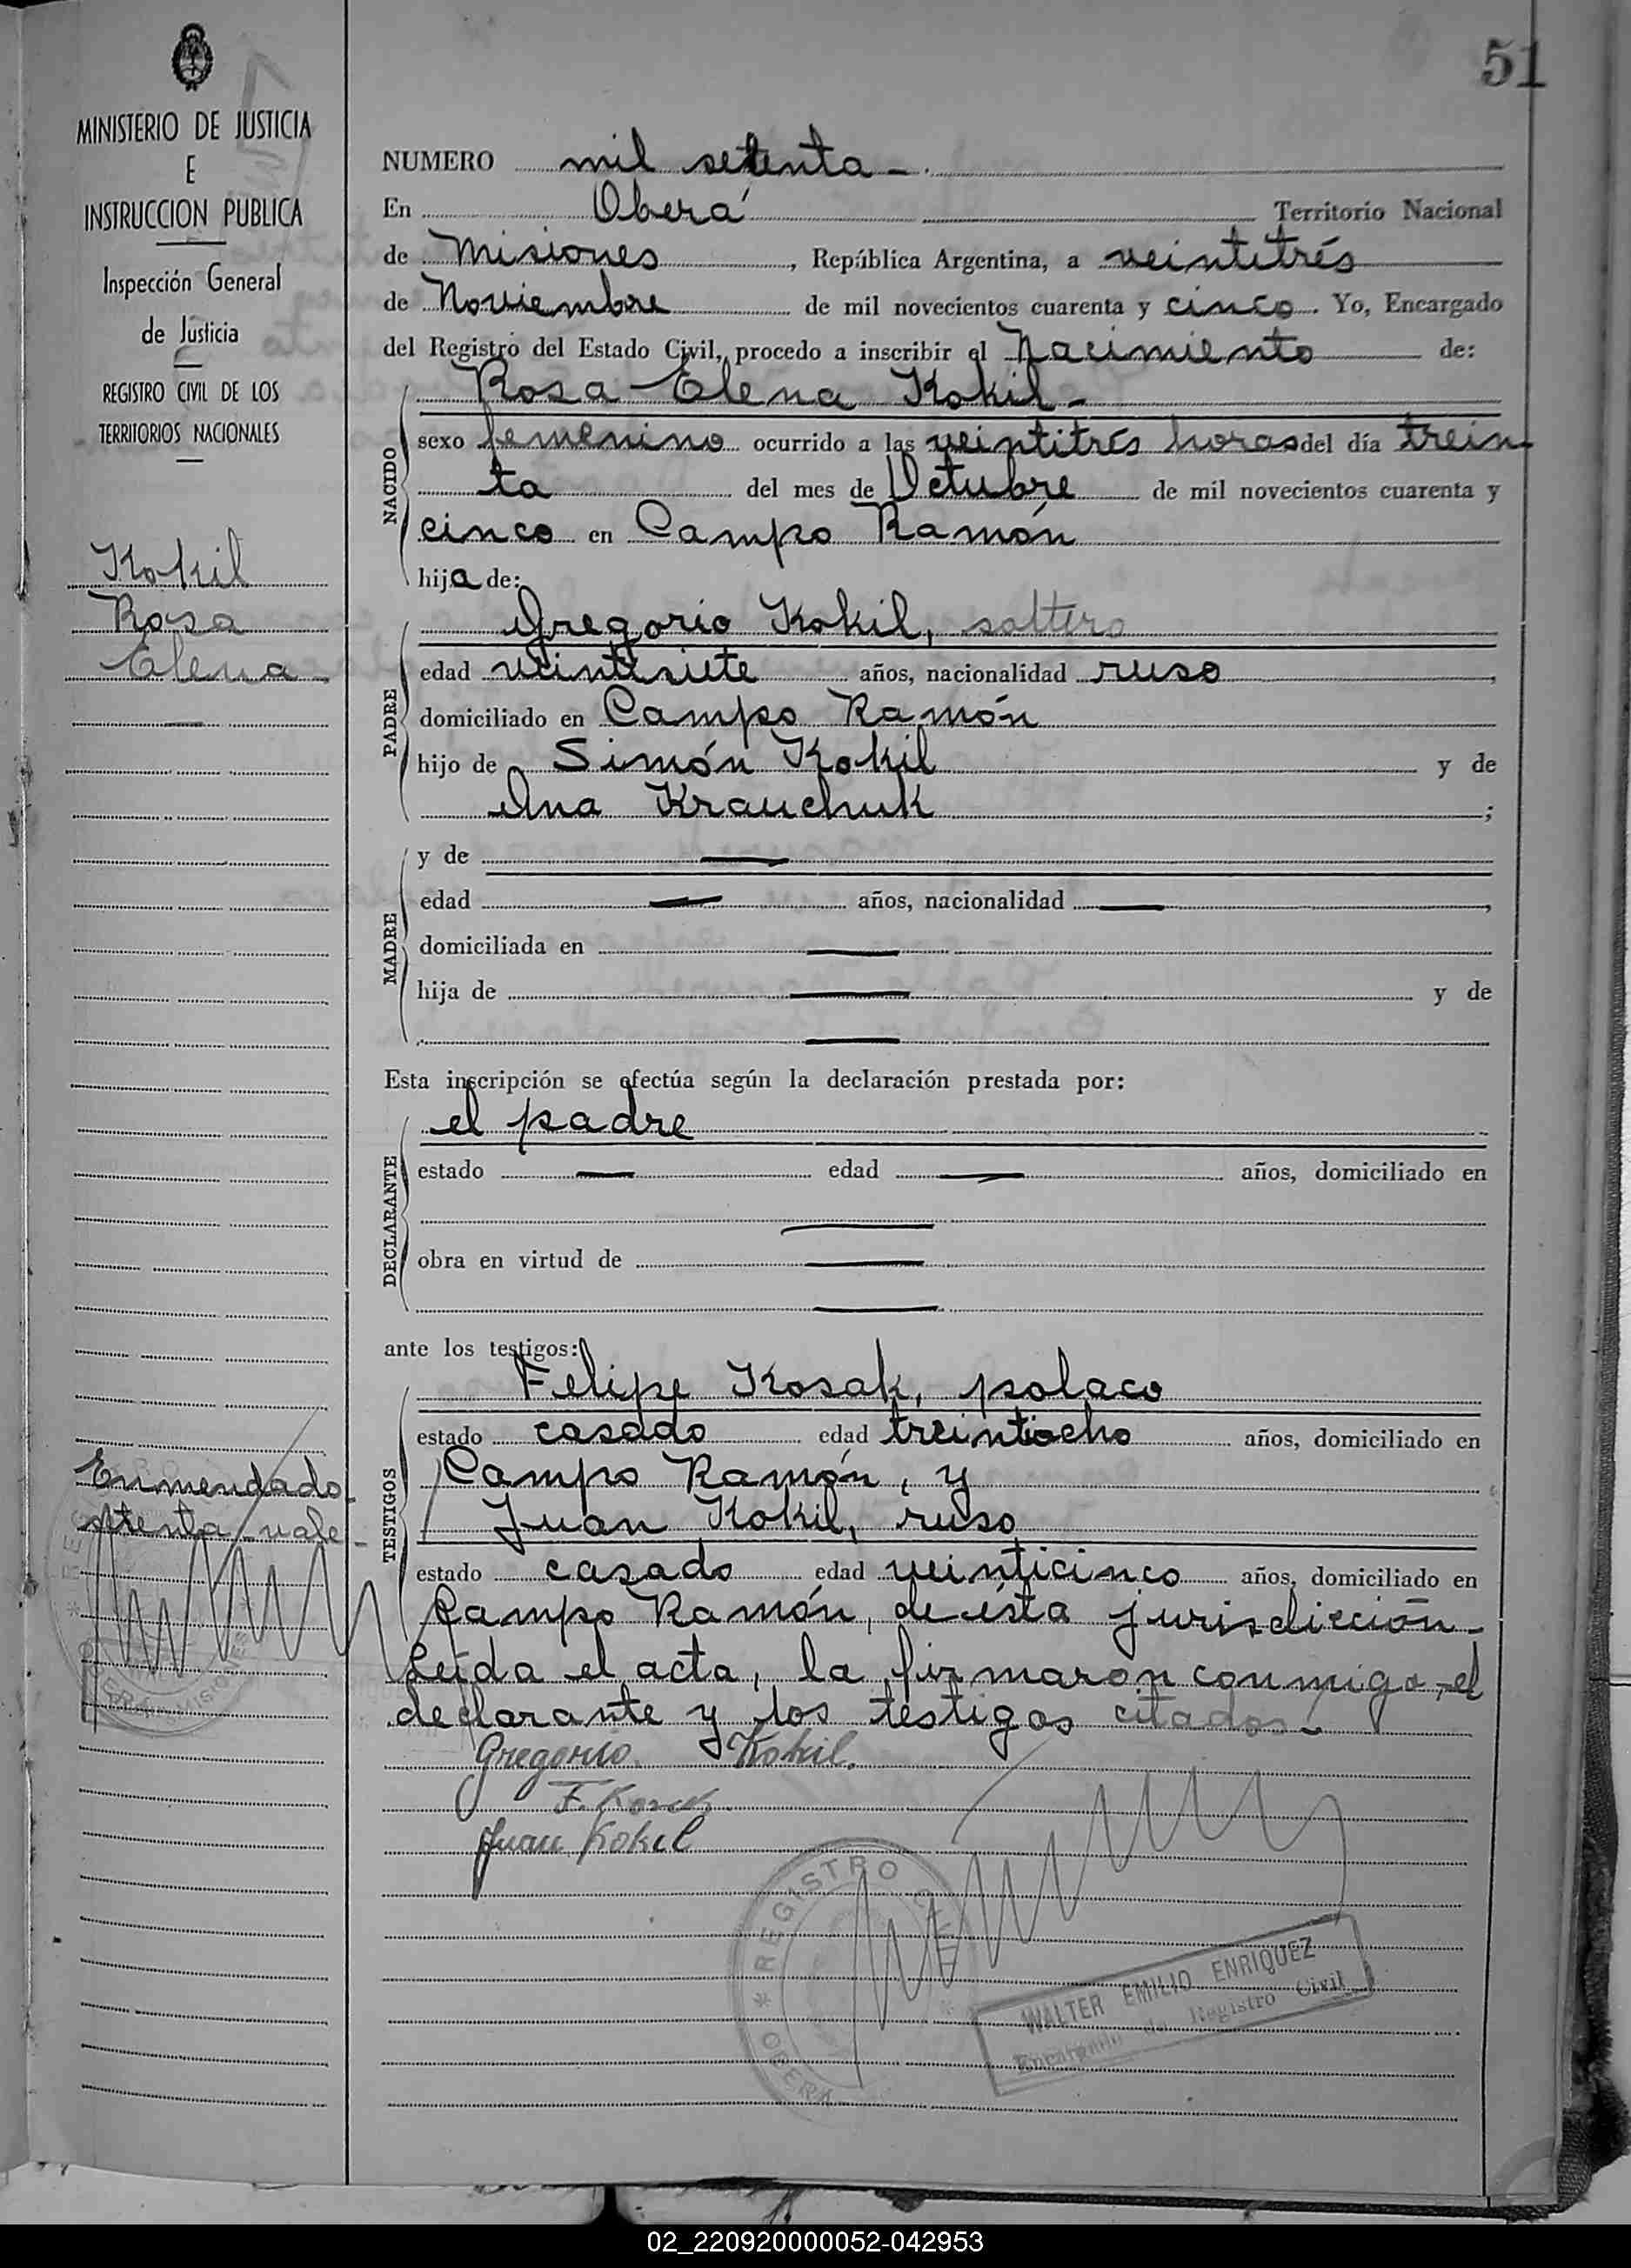 51
MINISTERIO DE JUSTICIA
E
INSTRUCCION PUBLICA
Inspección General
de Justicia
REGISTRO CIVIL DE LOS
TERRITORIOS NACIONALES
Kokil
Rosa
Elena -
Enmendado
setenta - vale -
NUMERO mil setenta -
En Oberá Territorio Nacional
de Misiones, República Argentina, a veintitrés
de Noviembre de mil novecientos cuarenta y cinco. Yo, Encargado
del Registro del Estado Civil, procedo a inscribir el Nacimiento de:
Rosa Elena Kokil -
NACIDO
sexo femenino ocurrido a las veintitrés horas del día trein-
ta del mes de Octubre de mil novecientos cuarenta y
cinco en Campo Ramón
hija de:
Gregorio Kokil, soltero
PADRE
edad veintisiete años, nacionalidad ruso,
domiciliado en Campo Ramón
hijo de Simón Kokil y de
Ana Krauchuk;
MADRE
y de —
edad — años, nacionalidad —,
domiciliada en —
hija de — y de
—
Esta inscripción se efectúa según la declaración prestada por:
el padre
DECLARANTE
estado — edad — años, domiciliado en
—
obra en virtud de —
—
ante los testigos:
Felipe Kosak, polaco
TESTIGOS
estado casado edad treintiocho años, domiciliado en
Campo Ramón, y
Juan Kokil, ruso
estado casado edad veinticinco años, domiciliado en
Campo Ramón, de ésta jurisdicción -
Leída el acta, la firmaron conmigo, el
declarante y los testigos citados -
Gregorio Kokil.
F. Kosak
Juan Kokil
REGISTRO CIVIL
OBERA
WALTER EMILIO ENRIQUEZ
Encargado de Registro Civil
02_220920000052-042953